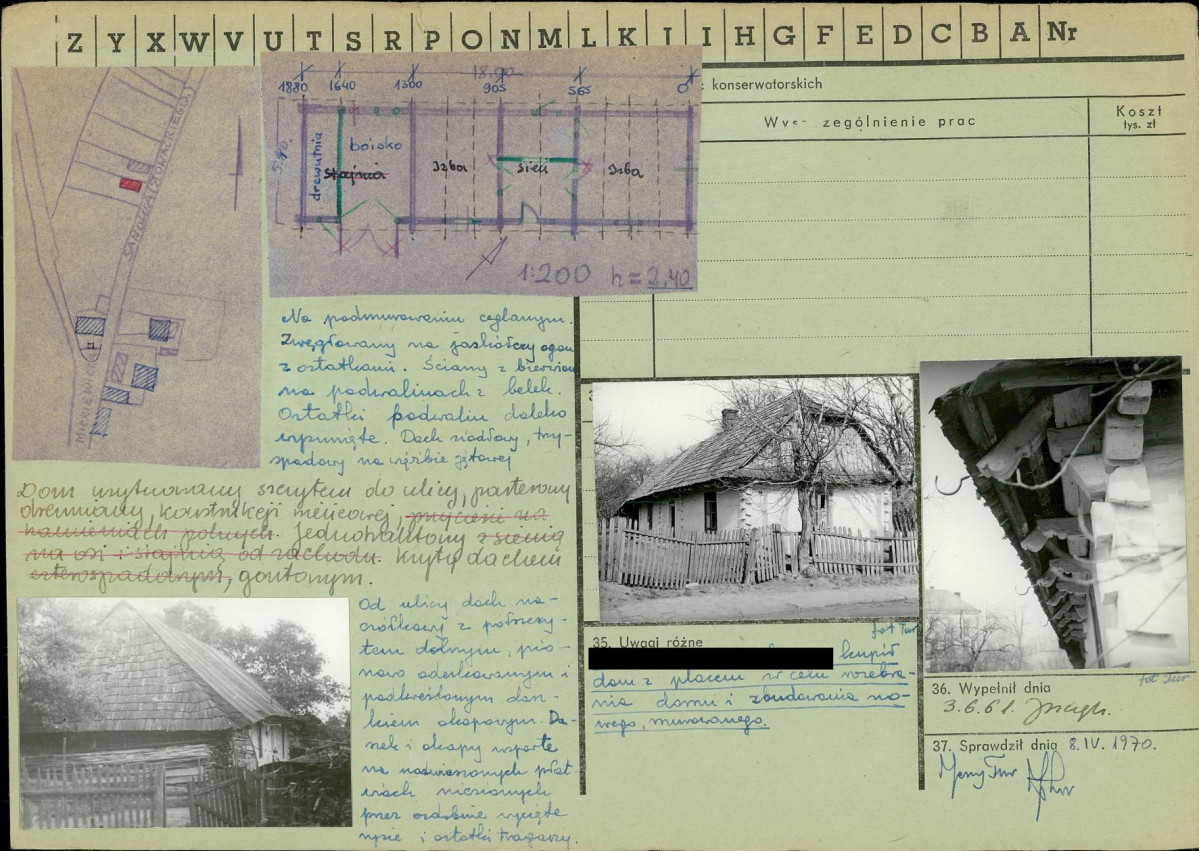 Z Y X W V U T S R P O N M L K J I H G F E D C B A Nr
konserwatorskich
Koszt
tys. zł
zególnienie prac
18.90
1880 1640 1300 905 565 0
5.90
drewutnia
boisko
stajnia
Izba
sień
Izba
1:200 h = 2.40
Na podmurowaniu ceglanym.
Zwęgłowany na jaskółczy ogon
z ostatkami. Ściany z bierwion
na podwalinach z belek.
Ostatki podwalin daleko
wysunięte. Dach siodłowy, trzy-
spadowy na więźbie jętowej
Dom usytuowany szczytem do ulicy, parterowy
drewniany, konstrukcji wieńcowej, przyciesi na
kamieniach polnych. Jednotraktowy z sienią
na osi i stajnią od zachodu. Kryty dachem
czterospadowym, gontowym.
Od ulicy dach na-
czółkowy z półszczy-
tem dolnym, pio-
nowo odeskowanym i
podkreślonym dasz-
kiem okapowym. Da-
szek i okapy wsparte
na nadwieszonych płat-
wiach niesionych
przez ozdobnie wycięte
rysie i ostatki tragarzy.
fot Tur
35. Uwagi różne
kupił
dom z placem w celu rozebra-
nia domu i zbudowania no-
wego, murowanego.
fot Tur
36. Wypełnił dnia
3.6.61.
37. Sprawdził dnia 8.IV. 1970.